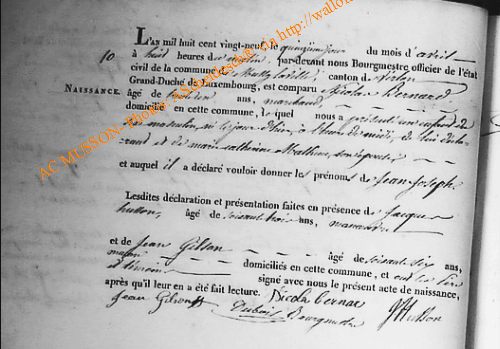 L'an mil huit cent vingt-neuf, le quinzième jour du mois d'avril
10
à huit heures du matin, par-devant nous Bourgmestre officier de l'état
civil de la commune de canton d'Arlon
Grand-Duché de Luxembourg, est comparu Nicolas Bernard
NAISSANCE.
âgé de ans, marchand,
domicilié en cette commune, lequel nous a présenté un enfant de
sexe masculin, né le jour d'hier, à heure de midi, de lui décla-
rant et de marie catherine Mathieu, son épouse
et auquel il a déclaré vouloir donner les prénoms de Jean Joseph
Lesdites déclaration et présentation faites en présence de Jacques
husson, âgé de soixante trois ans, manoeuvre
et de Jean Gilson âgé de soixante six ans,
maçon domiciliés en cette commune, et ont les père
et témoins signé avec nous le présent acte de naissance,
après qu'il leur en a été fait lecture. Nicola bernar
Jean Gilson Dubois Bourgmestre JHusson
AC MUSSON- Photos http://wallon